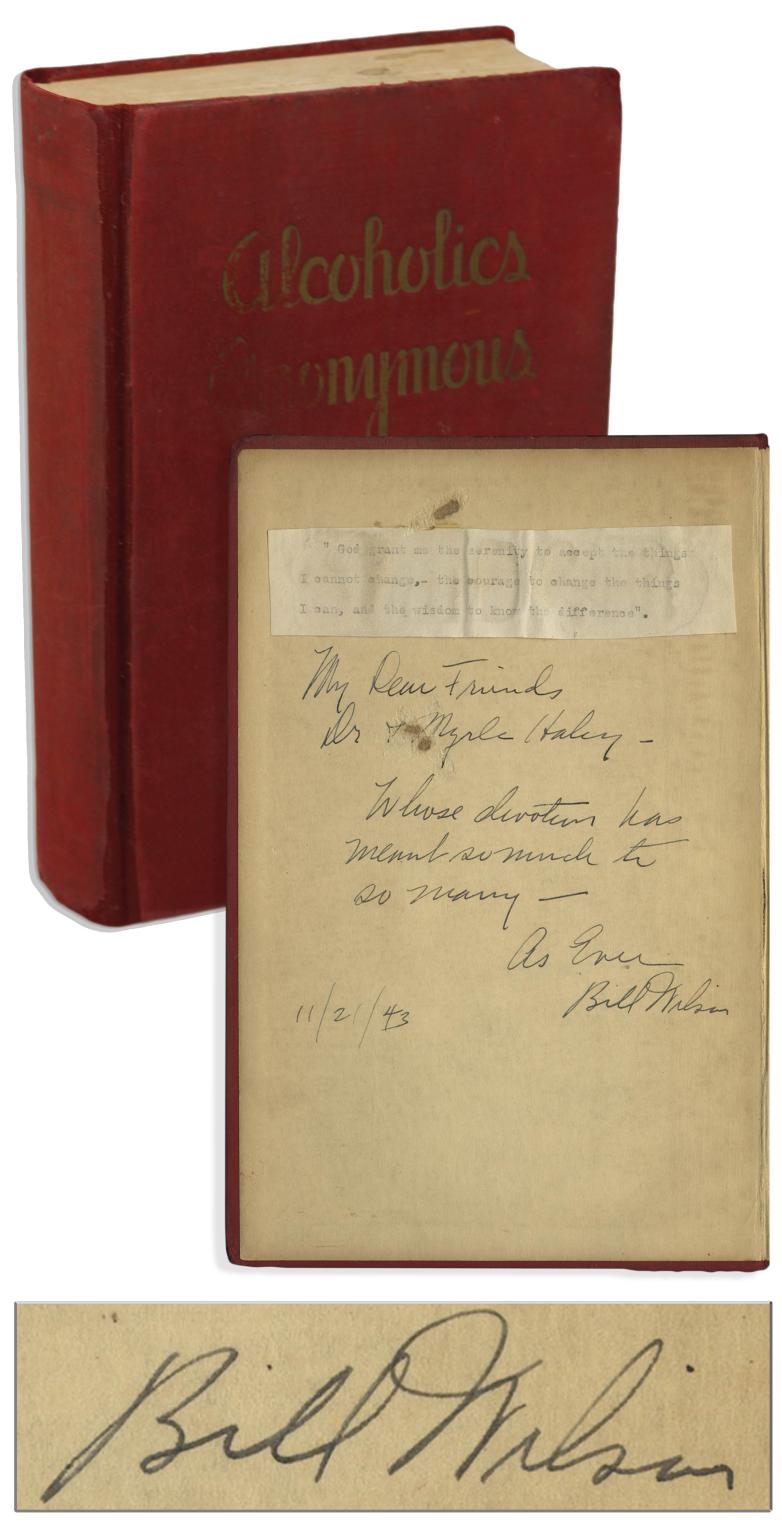 Alcoholics
Anonymous
" God grant me the serenity to accept the things
I cannot change,- the courage to change the things
I can, and the wisdom to know the difference".
My Dear Friends
Dr & Myrle Haley -
Whose devotion has
meant so much to
so many —
As Ever
Bill Wilson
11/21/43
Bill Wilson